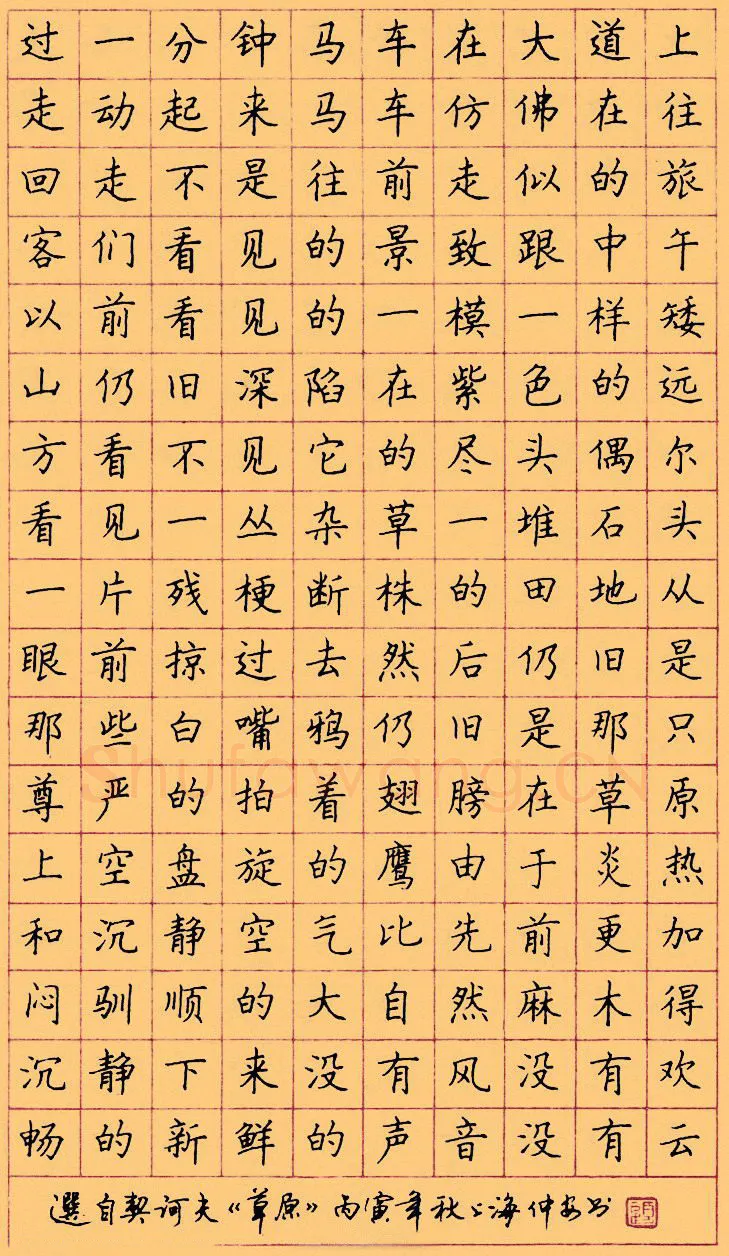 过一分钟马车在大道上
走动起来马车仿佛在往
回走不是往前走似的旅
客们看见的景致跟中午
以前看见的一模一样矮
山仍旧深陷在紫色的远
方看不见它的尽头偶尔
看见一丛杂草一堆石头
一片残梗断株的田地从
眼前掠过去然后仍旧是
那些白嘴鸦仍旧是那只
尊严的拍着翅膀在草原
上空盘旋的鹰由于炎热
和沉静空气比先前更加
闷驯顺的大自然麻木得
沉静下来没有风没有欢
畅的新鲜的声音没有云
選自契诃夫《草原》丙寅年秋上海仲安书
Shufawang.CN